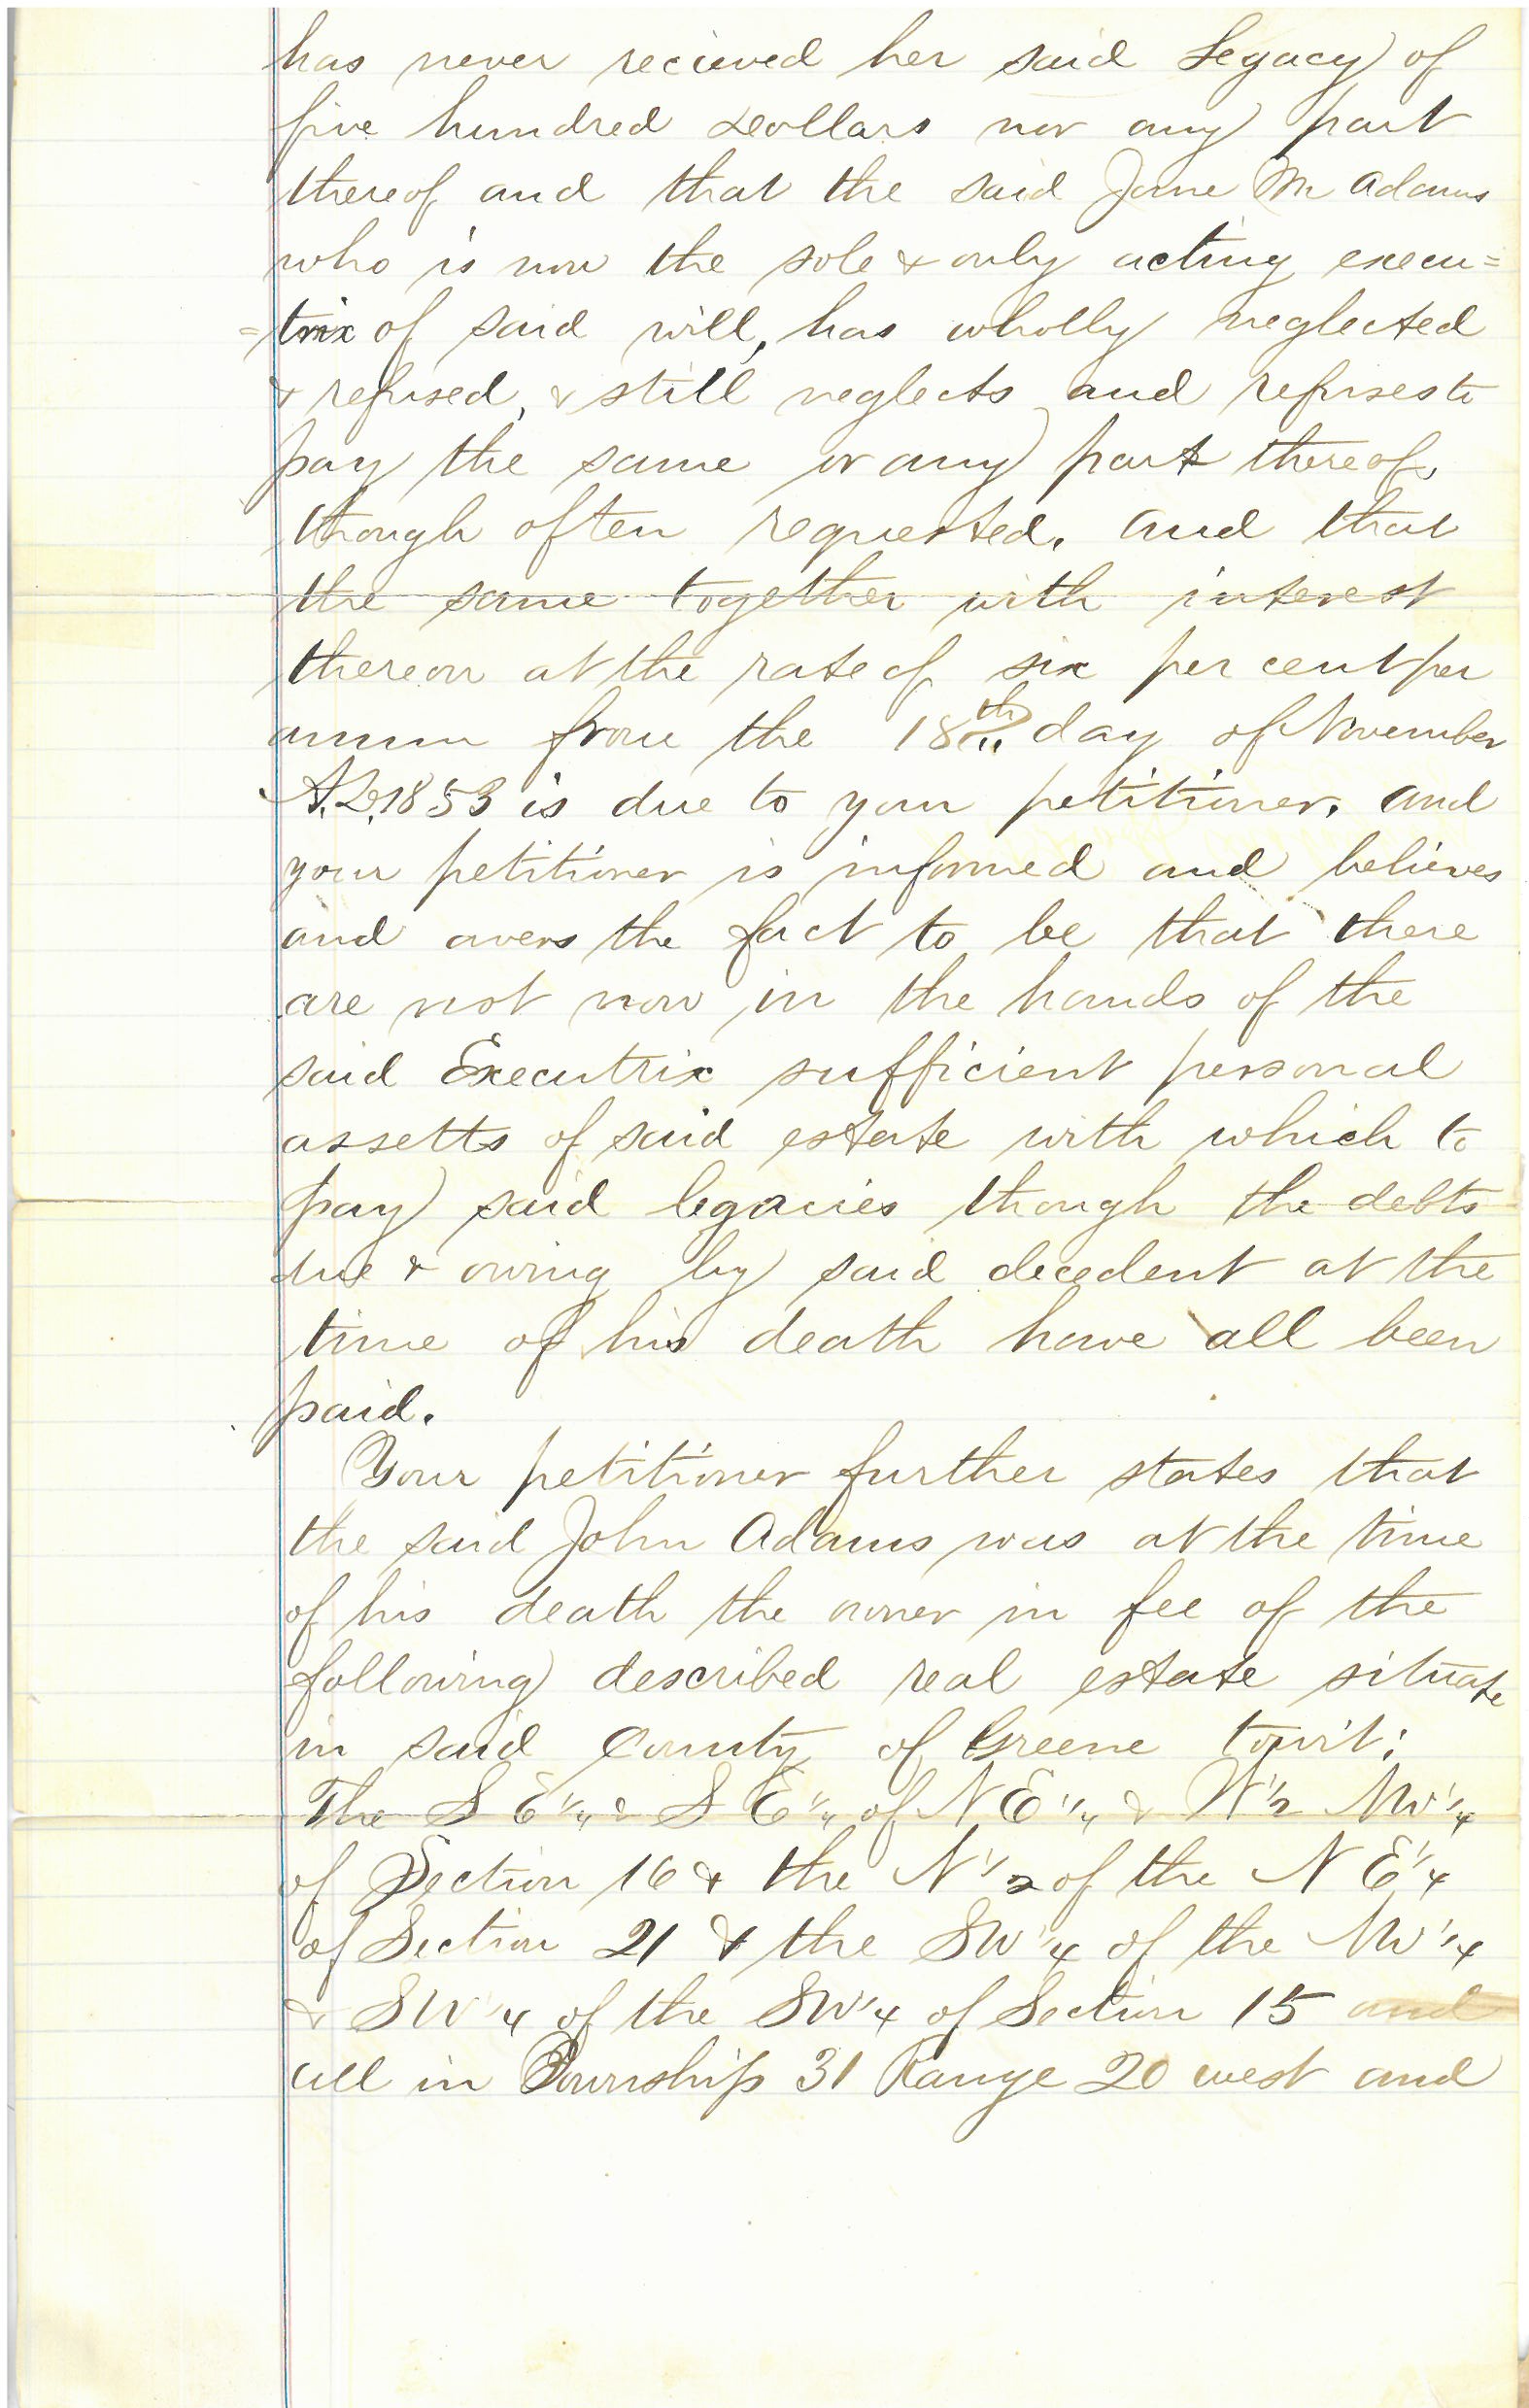 has never recieved her said Legacy of
five hundred Dollars nor any part
thereof and that the said Jane M Adams
who is now the sole & only acting execu=
=trix of said will, has wholly neglected
& refused, & still neglects and refuses to
pay the same or any part thereof,
though often requested. and that
the same together with interest
thereon at the rate of six per cent per
annum from the 18th day of November
A.D. 1853 is due to your petitioner. and
your petitioner is informed and believes
and avers the fact to be that there
are not now in the hands of the
said Executrix sufficient personal
assetts of said estate with which to
pay said legacies though the debts
due & owing by said decedent at the
time of his death have all been
paid.
Your petitioner further states that
the said John Adams was at the time
of his death the owner in fee of the
following described real estate situate
in said County of Greene towit:
The S E 1/4 & S E 1/4 of N E 1/4 & W 1/2 NW 1/4
of Section 16 & the N 1/2 of the N E 1/4
of Section 21 & the SW 1/4 of the NW 1/4
& SW 1/4 of the SW 1/4 of Section 15 and
all in Township 31 Range 20 west and